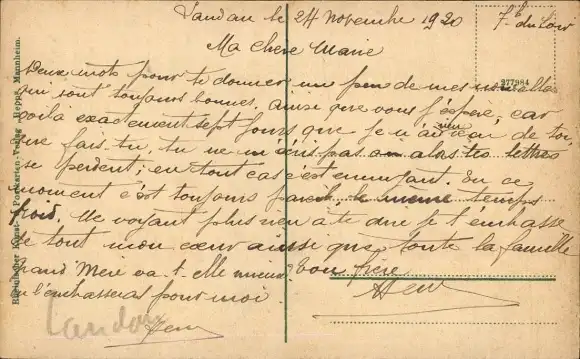 Landau le 24 novembre 1920 7h du soir
Ma chère Marie
Deux mots pour te donner un peu de mes nouvelles
qui sont toujours bonnes, ainsi que vous j'espère, car
voilà exactement sept jours que je n'ai rien de toi,
que fais-tu, tu ne m'écris pas ou alors tes lettres
se perdent; en tout cas c'est ennuyant. En ce
moment c'est toujours pareil, le même temps
froid. Ne voyant plus rien à te dire je t'embrasse
de tout mon cœur ainsi que toute la famille
Grand' Mère va-t-elle mieux? Ton frère
tu l'embrasseras pour moi
Landau
277984
Kunst- Postkarten-Verlag Hepps, Mannheim.